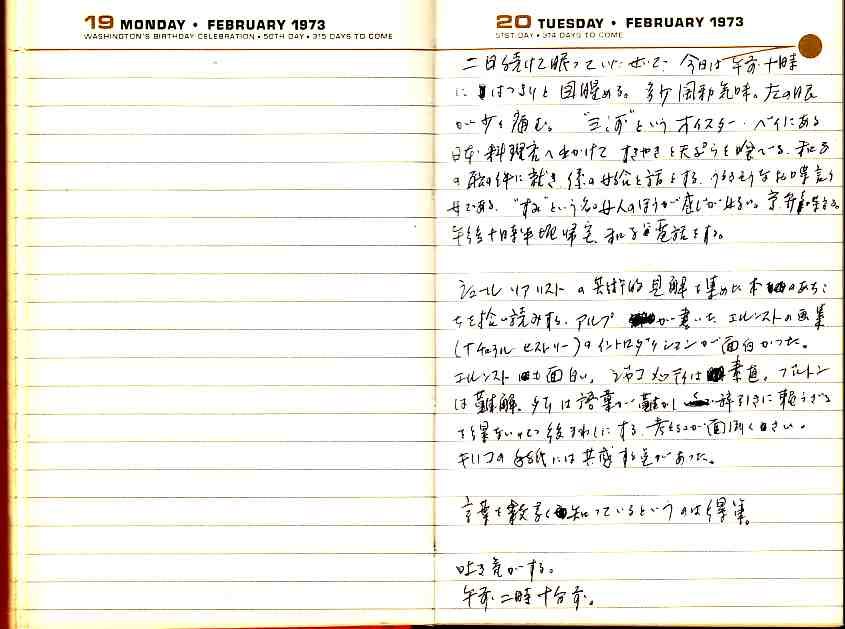 19 MONDAY • FEBRUARY 1973
WASHINGTON'S BIRTHDAY CELEBRATION • 50TH DAY • 315 DAYS TO COME
20 TUESDAY • FEBRUARY 1973
51ST DAY • 314 DAYS TO COME
二日続けて眠っていたせいで、今日は午前十時
にはっきりと目醒める。多少風邪気味。左の眼
が少々痛む。“三河”というオイスター・ベイにある
日本料理店へ出かけてすきやきと天ぷらを喰べる。和子
の
女である。“すみ”という名の女人のほうが感じが
午後十時半頃帰宅、和子に電話をする。
シュール・リアリストの芸術的見解を集めた本のあち、こ
ちを拾い読みする。アルプが書いた、エルンストの画集
(ナチュラル ヒストリー)のイントロダクションが面白かった。
エルンストも面白い。ジャコメッティは素直。ブルトン
は難解。 は語葉が難かし 辞引きに頼らざる
を得ないので後まわしにする。考えるのが面倒くさい。
キリコの手紙には共感する点があった。
言葉を数多く知っているというのは得策。
吐き気がする。
午前二時十分前。